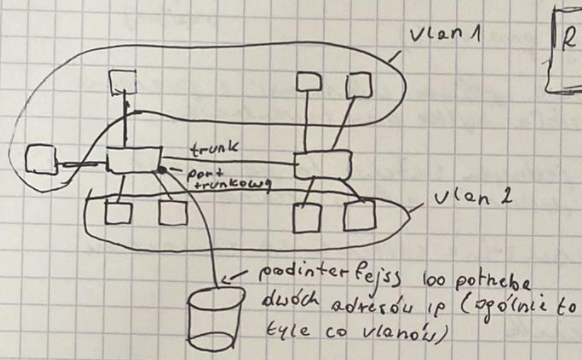 vlan 1
R
trunk
port
trunkowy
vlan 2
podinterfejss bo potrzeba
dwóch adresów ip (ogólnie to
tyle co vlanów)